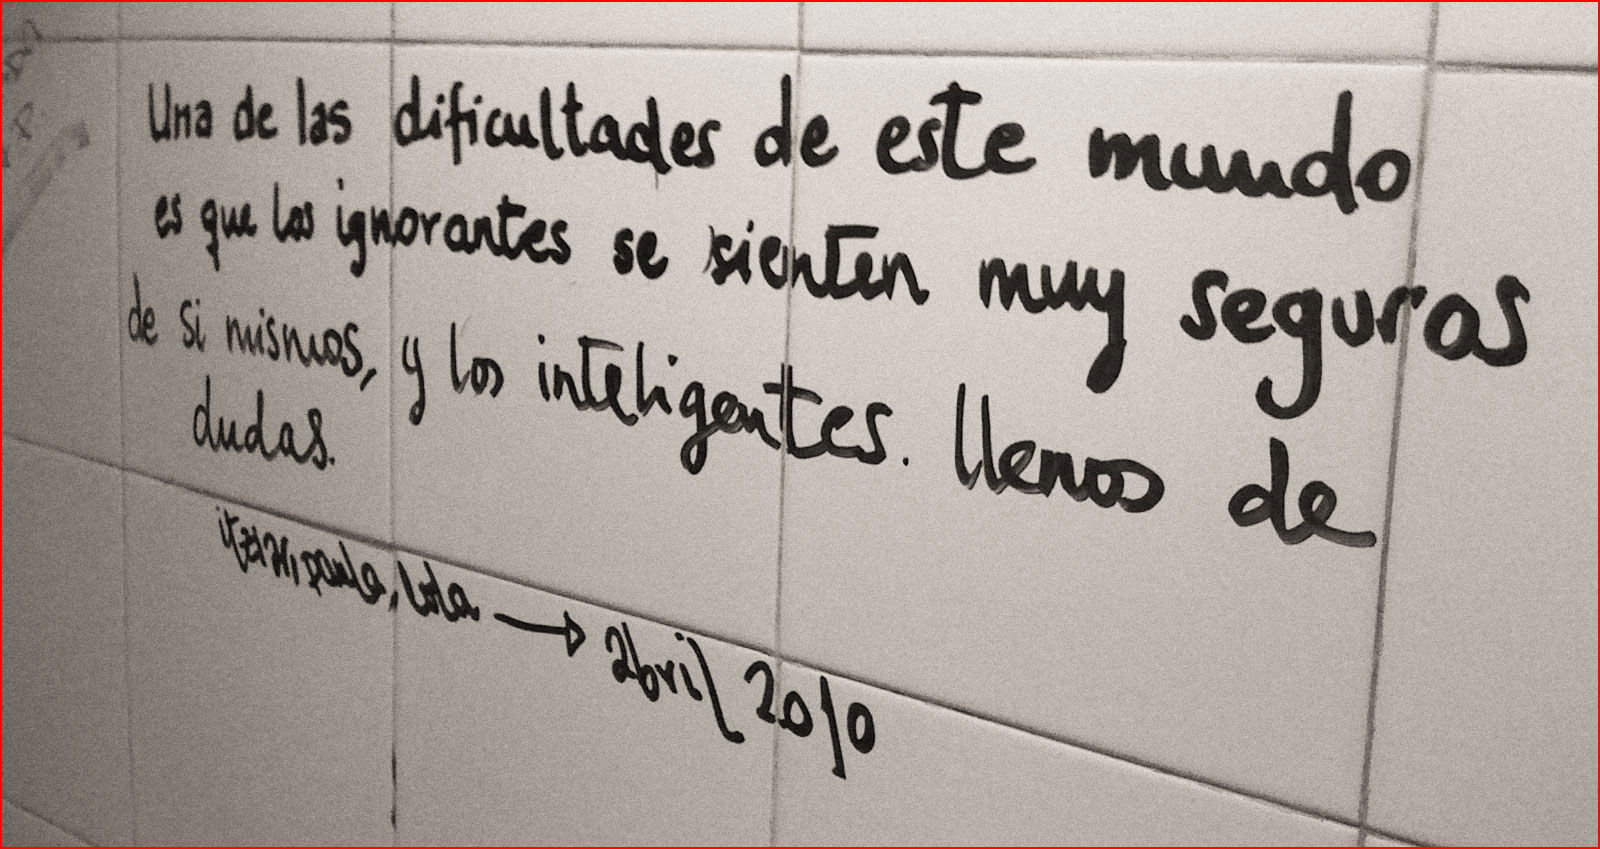 Una de las dificultades de este mundo
es que los ignorantes se sienten muy seguros
de si mismos, y los inteligentes. llenos de
dudas.
itziar, paula, lola → abril 2010